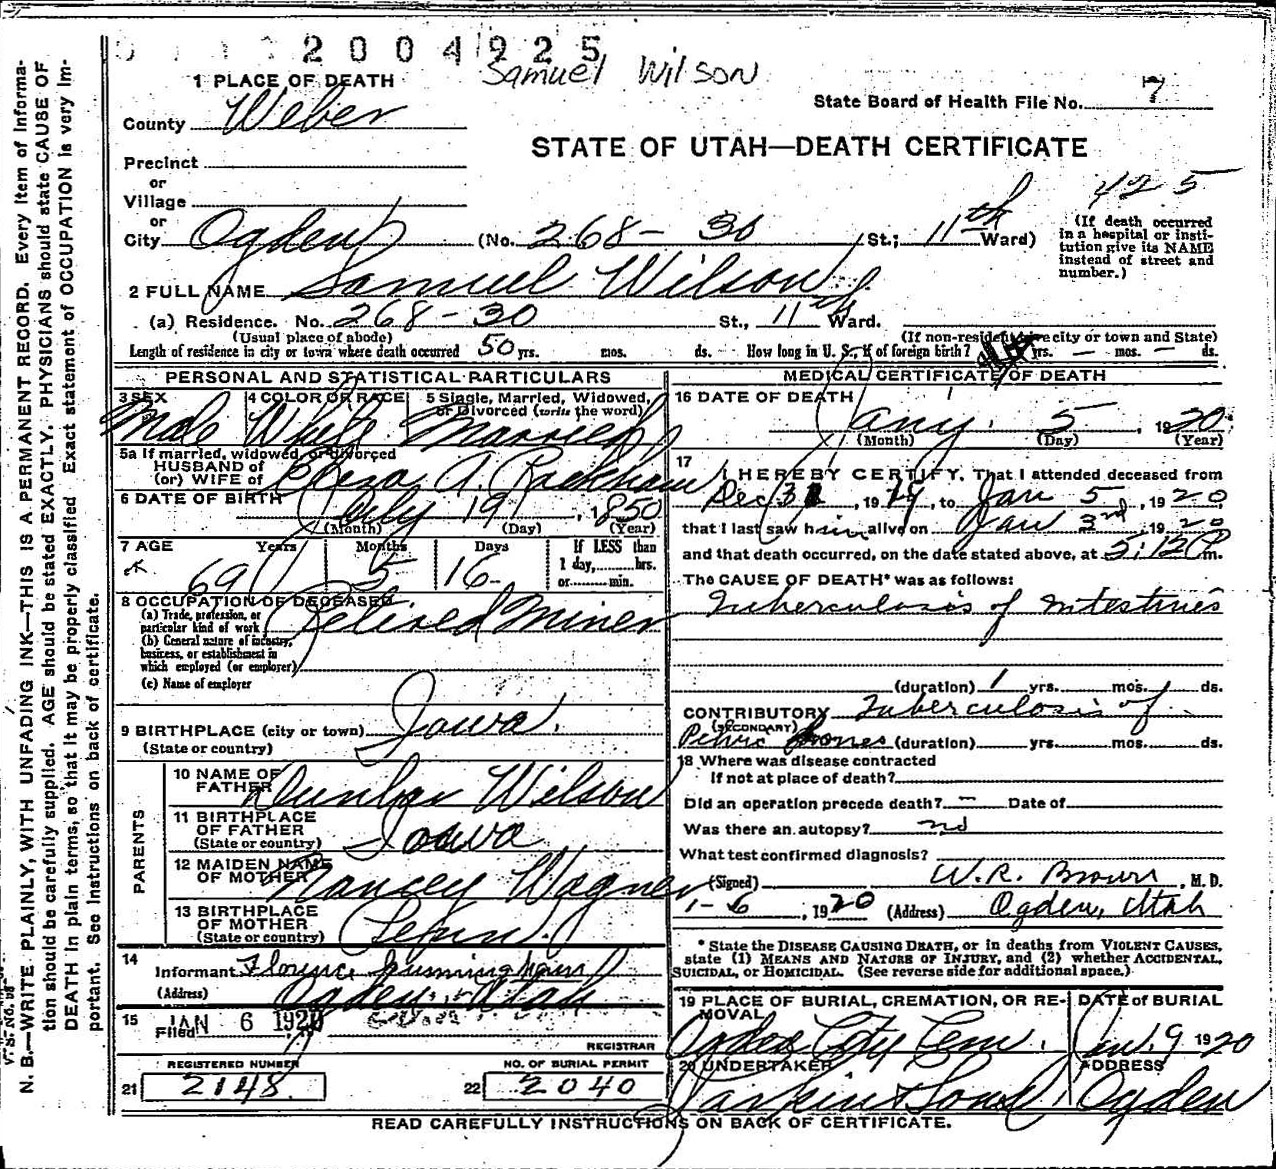 2004925
Samuel Wilson
1 PLACE OF DEATH
State Board of Health File No. 7
County Weber
STATE OF UTAH—DEATH CERTIFICATE
Precinct
or
Village
425
or
City Ogden (No. 268 - 30 St.; 11th Ward)
(If death occurred
in a hospital or insti-
tution give its NAME
instead of street and
number.)
2 FULL NAME Samuel Wilson
(a) Residence. No. 268 - 30 St., 11th Ward.
(Usual place of abode) (If non-resident give city or town and State)
Length of residence in city or town where death occurred 50 yrs. mos. ds. How long in U. S., if of foreign birth? yrs. — mos. — ds.
PERSONAL AND STATISTICAL PARTICULARS
3 SEX 4 COLOR OR RACE 5 Single, Married, Widowed,
or Divorced (write the word)
Male White Married
5a If married, widowed, or divorced
HUSBAND of
(or) WIFE of A.
6 DATE OF BIRTH July 19, 1850
(Month) (Day) (Year)
7 AGE Years Months Days If LESS than
1 day, hrs.
69 5 16 or min.
8 OCCUPATION OF DECEASED
(a) Trade, profession, or
particular kind of work Retired Miner
(b) General nature of industry,
business, or establishment in
which employed (or employer)
(c) Name of employer
9 BIRTHPLACE (city or town) Iowa.
(State or country)
PARENTS
10 NAME OF
FATHER Dunbar Wilson
11 BIRTHPLACE
OF FATHER
(State or country) Iowa
12 MAIDEN NAME
OF MOTHER Nancey Wagner
13 BIRTHPLACE
OF MOTHER
(State or country)
14
Informant Florence
(Address) Ogden, Utah
15 Filed JAN 6 1920
REGISTRAR
REGISTERED NUMBER NO. OF BURIAL PERMIT
21 2148 22 2040
MEDICAL CERTIFICATE OF DEATH
16 DATE OF DEATH
Jany. 5, 1920
(Month) (Day) (Year)
17
I HEREBY CERTIFY, That I attended deceased from
Dec 31, 1919, to Jan 5, 1920
that I last saw him alive on Jan 3rd, 1920
and that death occurred, on the date stated above, at 5:12 P m.
The CAUSE OF DEATH* was as follows:
Tuberculosis of Intestines
(duration) 1 yrs. mos. ds.
CONTRIBUTORY Tuberculosis of
(SECONDARY)
Pelvic Bones (duration) yrs. mos. ds.
18 Where was disease contracted
If not at place of death?
Did an operation precede death? — Date of
Was there an autopsy?
What test confirmed diagnosis?
(Signed) W. R. Brown, M. D.
1-6, 1920 (Address) Ogden, Utah
* State the DISEASE CAUSING DEATH, or in deaths from VIOLENT CAUSES,
state (1) MEANS AND NATURE OF INJURY, and (2) whether ACCIDENTAL,
SUICIDAL, or HOMICIDAL. (See reverse side for additional space.)
19 PLACE OF BURIAL, CREMATION, OR RE-
MOVAL DATE of BURIAL
Ogden City Cem. Jan. 9 1920
20 UNDERTAKER ADDRESS
Larkin & Sons. Ogden
READ CAREFULLY INSTRUCTIONS ON BACK OF CERTIFICATE.
N. B.—WRITE PLAINLY, WITH UNFADING INK—THIS IS A PERMANENT RECORD. Every item of informa-
tion should be carefully supplied. AGE should be stated EXACTLY. PHYSICIANS should state CAUSE OF
DEATH in plain terms, so that it may be properly classified. Exact statement of OCCUPATION is very im-
portant. See instructions on back of certificate.